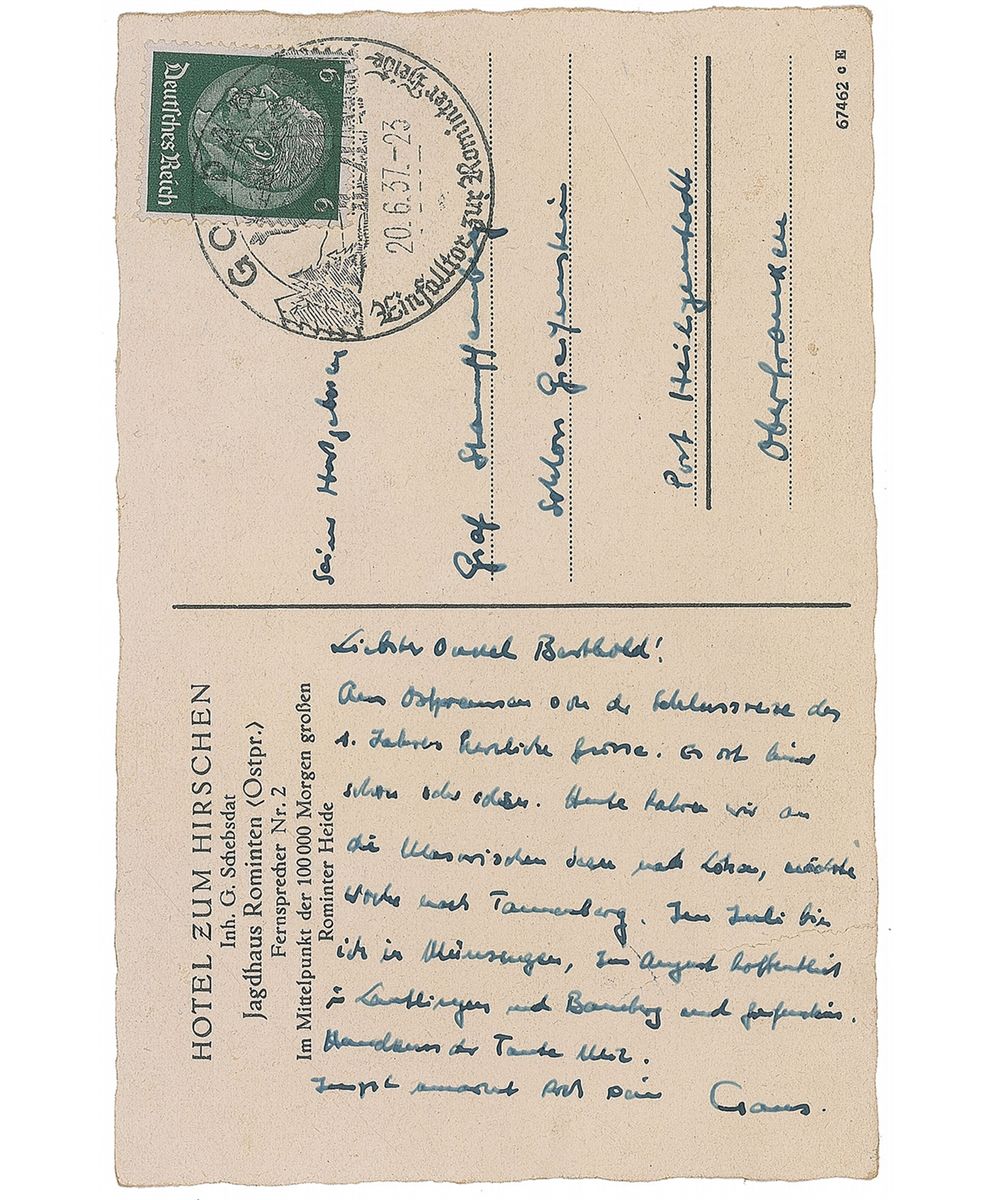 HOTEL ZUM HIRSCHEN
Inh. G. Schebsdat
Jagdhaus Rominten (Ostpr.)
Fernsprecher Nr. 2
Im Mittelpunkt der 100000 Morgen großen
Rominter Heide
Liebster Onkel Berthold!
Aus Ostpreussen von der Schlussreise des
1. Jahres herzliche Grüsse. Es ist hier
schon sehr schön. Heute fahren wir an
die Masurischen Seen nach Lötzen, nächste
Woche nach Tannenberg. Im Juli bin
ich in Münsingen, im August hoffentlich
in Lautlingen und Bamberg und Greifenstein.
Handkuss der Tante
Dein
Claus.
Deutsches Reich
6
6
GO
20.6.37.-23
Einfalltor zur Rominter Heide
Seiner Hochgeboren
Graf Stauffenberg
Schloss Greifenstein
Post Heiligenstadt
Oberfranken
67462 c E